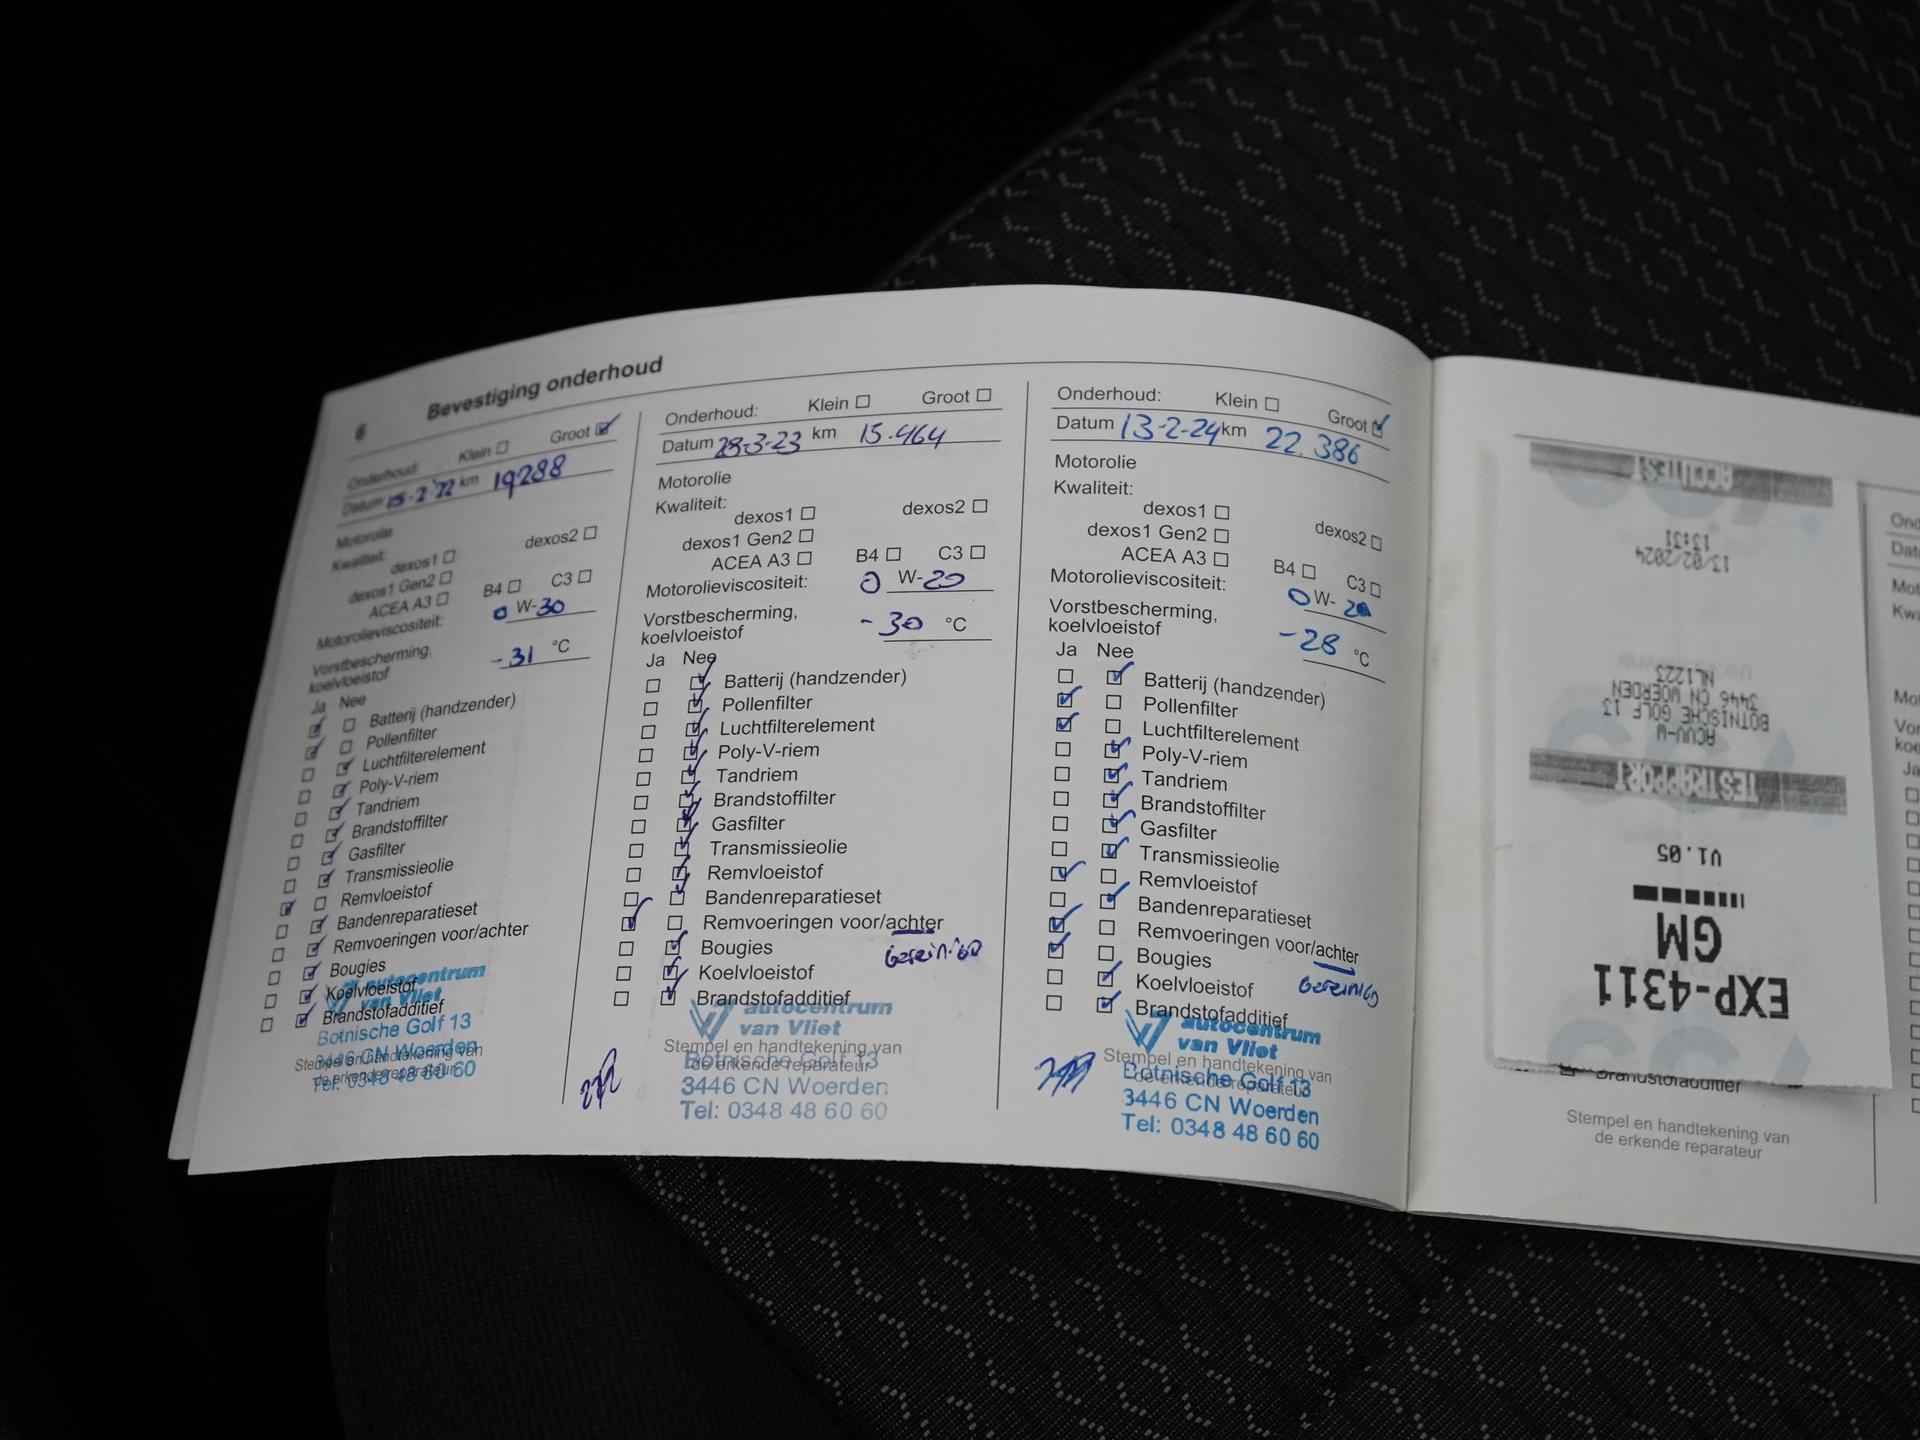 6
Bevestiging onderhoud
Onderhoud: Klein ☐ Groot ☑
Datum 15-2-'22 km 19288
Motorolie
Kwaliteit:
dexos1 ☐ dexos2 ☐
dexos1 Gen2 ☐
ACEA A3 ☐ B4 ☐ C3 ☐
Motorolieviscositeit: 0 W-30
Vorstbescherming,
koelvloeistof -31 °C
Ja Nee
☑ ☐ Batterij (handzender)
☑ ☐ Pollenfilter
☐ ☑ Luchtfilterelement
☐ ☑ Poly-V-riem
☐ ☑ Tandriem
☐ ☑ Brandstoffilter
☐ ☑ Gasfilter
☐ ☑ Transmissieolie
☑ ☐ Remvloeistof
☐ ☑ Bandenreparatieset
☐ ☑ Remvoeringen voor/achter
☐ ☑ Bougies
☐ ☑ Koelvloeistof
☐ ☑ Brandstofadditief
autocentrum
van Vliet
Botnische Golf 13
3446 CN Woerden
Tel: 0348 48 60 60
Stempel en handtekening van
de erkende reparateur
Onderhoud: Klein ☐ Groot ☐
Datum 28-3-23 km 15.464
Motorolie
Kwaliteit:
dexos1 ☐ dexos2 ☐
dexos1 Gen2 ☐
ACEA A3 ☐ B4 ☐ C3 ☐
Motorolieviscositeit: 0 W-20
Vorstbescherming,
koelvloeistof -30 °C
Ja Nee
☐ ☑ Batterij (handzender)
☐ ☑ Pollenfilter
☐ ☑ Luchtfilterelement
☐ ☑ Poly-V-riem
☐ ☑ Tandriem
☐ ☑ Brandstoffilter
☐ ☑ Gasfilter
☐ ☑ Transmissieolie
☐ ☑ Remvloeistof
☐ ☑ Bandenreparatieset
☑ ☐ Remvoeringen voor/achter
Gereinigd
☐ ☑ Bougies
☐ ☑ Koelvloeistof
☐ ☑ Brandstofadditief
autocentrum
van Vliet
Stempel en handtekening van
de erkende reparateur
Botnische Golf 13
3446 CN Woerden
Tel: 0348 48 60 60
Onderhoud: Klein ☐ Groot ☑
Datum 13-2-24 km 22.386
Motorolie
Kwaliteit:
dexos1 ☐ dexos2 ☐
dexos1 Gen2 ☐
ACEA A3 ☐ B4 ☐ C3 ☐
Motorolieviscositeit: 0 W-20
Vorstbescherming,
koelvloeistof -28 °C
Ja Nee
☐ ☑ Batterij (handzender)
☑ ☐ Pollenfilter
☑ ☐ Luchtfilterelement
☐ ☑ Poly-V-riem
☐ ☑ Tandriem
☐ ☑ Brandstoffilter
☐ ☑ Gasfilter
☐ ☑ Transmissieolie
☑ ☐ Remvloeistof
☐ ☑ Bandenreparatieset
☑ ☐ Remvoeringen voor/achter
Gereinigd
☑ ☐ Bougies
☐ ☑ Koelvloeistof
☐ ☑ Brandstofadditief
autocentrum
van Vliet
Stempel en handtekening van
de erkende reparateur
Botnische Golf 13
3446 CN Woerden
Tel: 0348 48 60 60
EXP-4311
GM
V1.05
TESTRAPPORT
ACVV-W
BOTNISCHE GOLF 13
3446 CN WOERDEN
NL1223
13/02/2024
13:31
ACCUTEST
Brandstofadditief
Stempel en handtekening van
de erkende reparateur